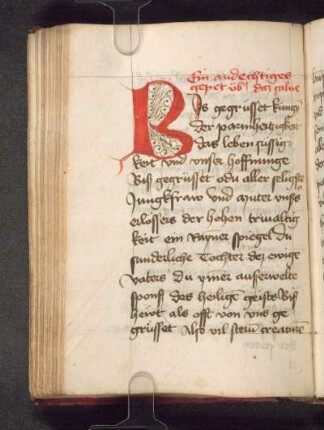 Ein andechtiges
gepet vb' daz salue
Bis gegrusset kung
der parmhertigkeit
das leben sussig
keit vnd vnser hoffnunge
Bis gegrusset o du aller seligste
Jungkfraw vnd muter vnsers
erlossers der hohen triualtig
keit ein rayner spiegel du
sunderliche tochter dez ewige
vaters du ymer auserwelte
sponss das heiligen geists Bis
hewt als offt von vns ge
grusset Also vil stern creature